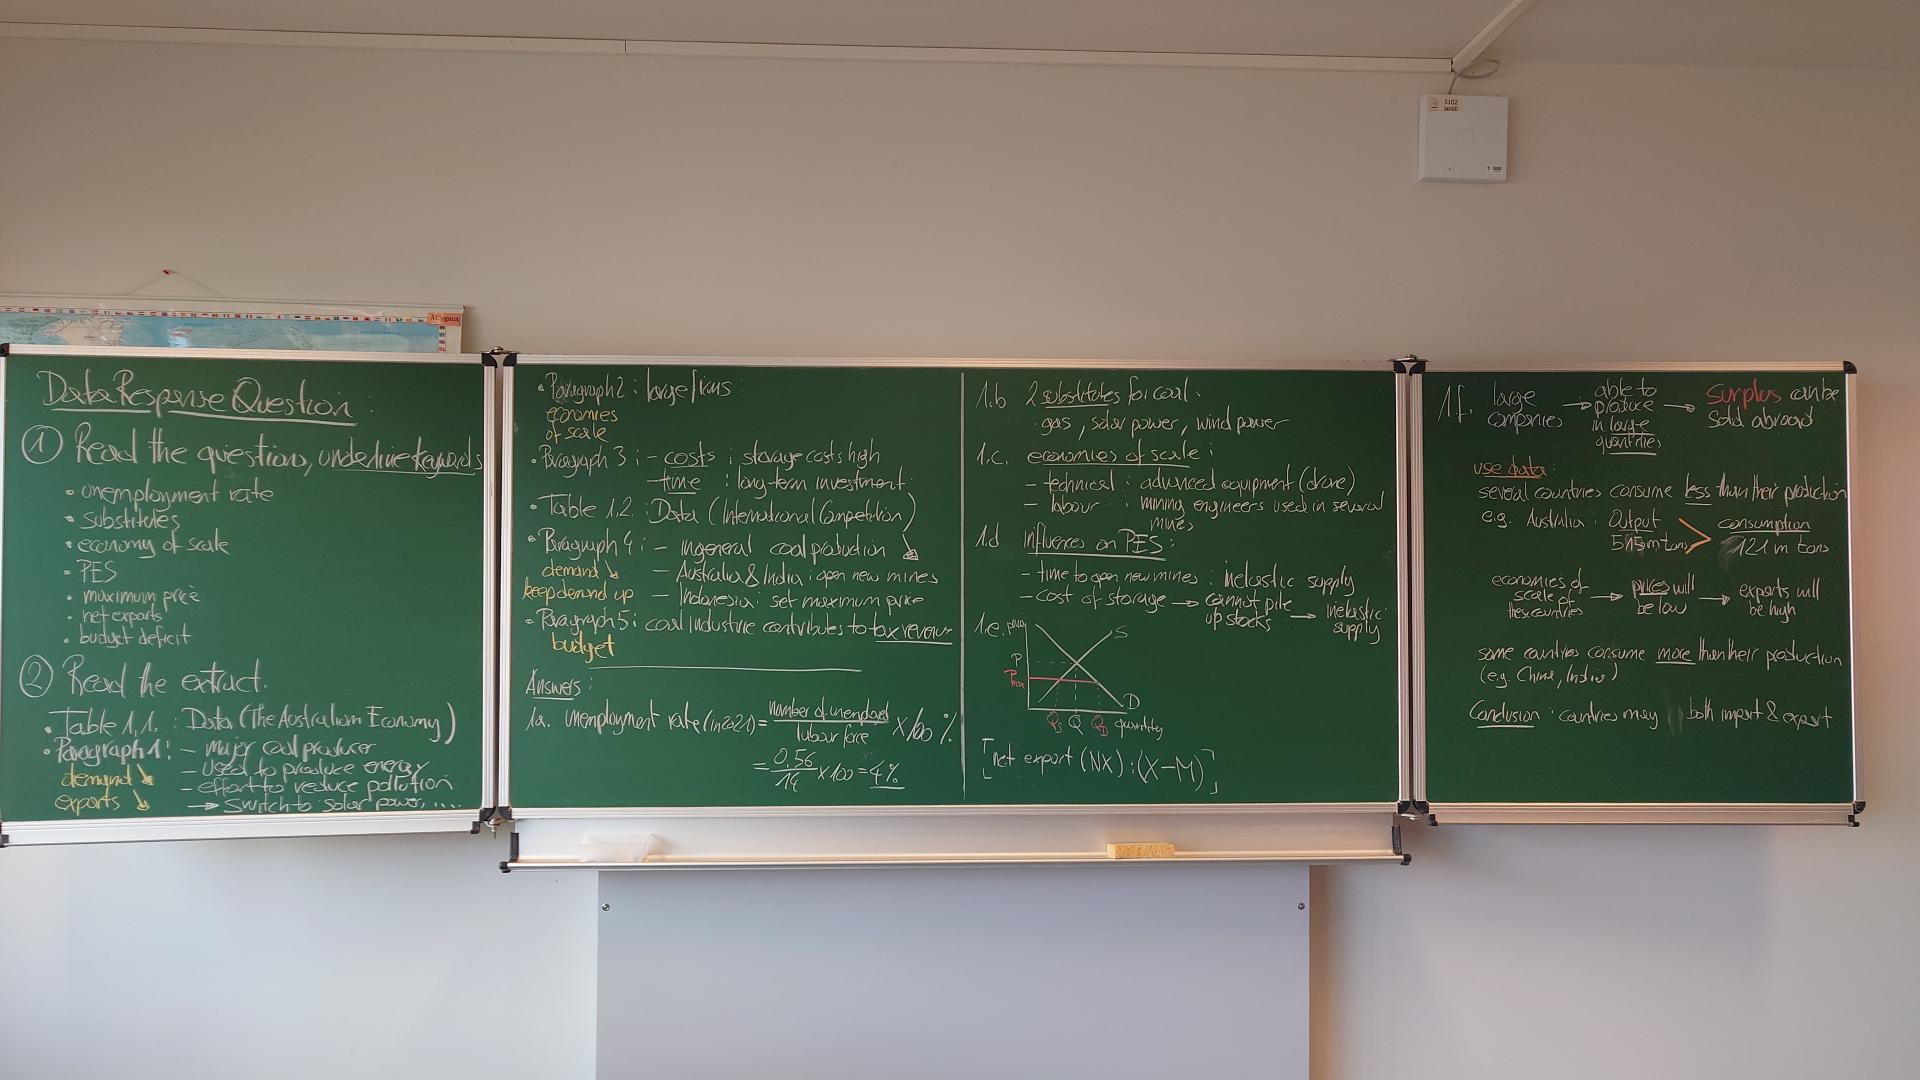 Data Response Question:
① Read the questions, underline keywords
• unemployment rate
• substitutes
• economy of scale
• PES
• maximum price
• net exports
• budget deficit
② Read the extract.
• Table 1.1. : Data (The Australian Economy)
• Paragraph 1: - major coal producer
demand ↘ - used to produce energy
- effort to reduce pollution
exports ↘ → switch to solar power, ....
• Paragraph 2 : large firms
economies
of scale
• Paragraph 3 : - costs : storage costs high
- time : long-term investment
• Table 1.2. : Data (International Competition)
• Paragraph 4 : - in general coal production ↘
demand ↘ - Australia & India : open new mines
keep demand up - Indonesia : set maximum price
• Paragraph 5 : coal industrie contributes to tax revenue
budget
Answers :
1a. Unemployment rate (in 2021) = number of unemployed / labour force × 100 %
= 0,56 / 14 × 100 = 4 %
1.b 2 substitutes for coal :
gas , solar power , wind power
1.c. economies of scale :
- technical : advanced equipment (drone)
- labour : mining engineers used in several
mines
1.d influences on PES :
- time to open new mines : inelastic supply
- cost of storage → cannot pile up stocks → inelastic supply
1.e. price
S
P
Pmax
D
Q Q quantity
[net export (NX) : (X-M)]
1f. large companies → able to produce in large quantities → surplus can be sold abroad
use data :
several countries consume less than their production
e.g. Australia : Output 515 m tons > consumption 121 m tons
economies of scale of these countries → prices will be low → exports will be high
some countries consume more than their production
(e.g. China, India)
Conclusion : countries may both import & export
5102